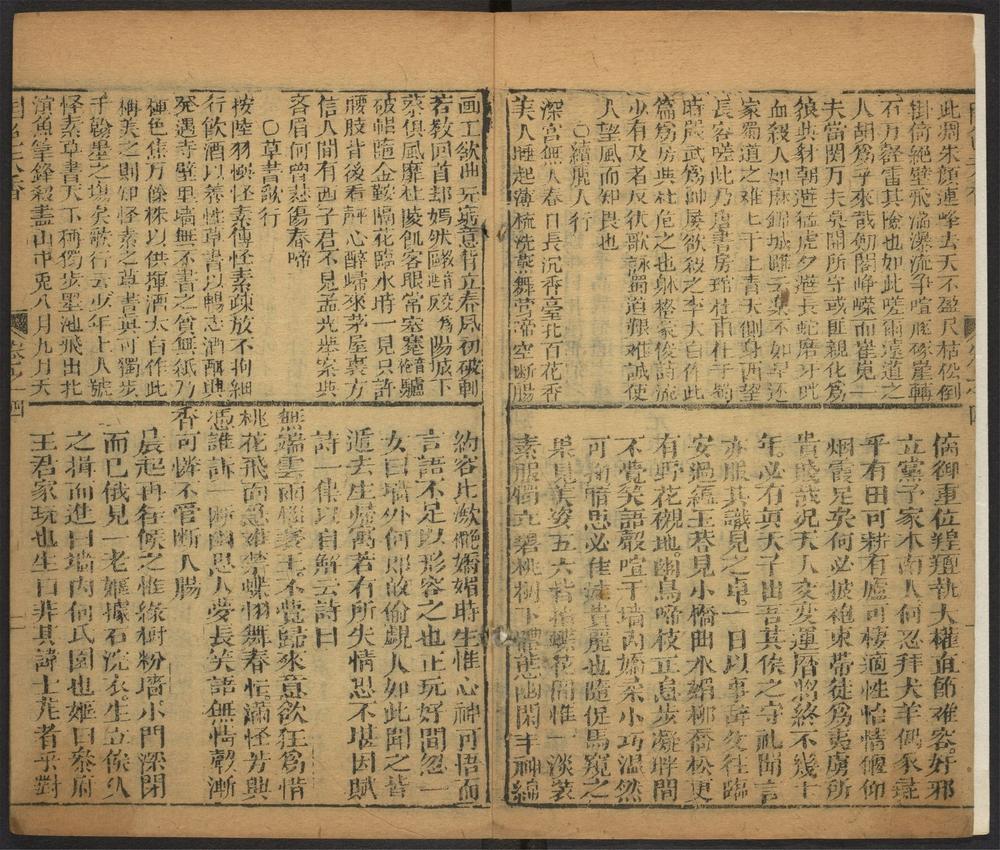 此凋朱顏連峰去天不盈尺枯松倒
掛倚絕壁飛湍瀑流爭喧豗砯崖轉
石万壑雷其險也如此嗟爾遠道之
人胡為乎來哉劍閣崢嶸而崔嵬一
夫當関万夫莫開所守或匪親化為
狼與豺朝避猛虎夕避長蛇磨牙吮
血殺人如麻錦城雖云樂不如早还
家蜀道之难难于上青天側身西望
長咨嗟此乃唐書房琯杜甫仕于蜀
時嚴武為帥屡欲殺之李太白作此
篇為房與杜危之也其格豪俊詩流
少有及者反伏歌詠蜀道艱难誠使
人望風而知畏也
○續麗人行
深宮無人春日長沉香臺北百花香
美人睡起薄梳洗燕舞莺啼空斷腸
病御重位煌煌執大權直節难客好邪
立黨予家本南人何忍拜犬羊偶家
平有田可耕有廬可棲適性怡情偃仰
烟霞足矣何必披袍束帶徒為夷虜所
貴賤哉況天人交变運曆將終不幾十
年必有真天子出吾其俟之守礼聞言
亦服其識見之卓一日以事辞父往臨
安過蘊玉巷見小橋曲水媚柳喬松更
有野花襯地幽鳥啼枝立息步凝眸間
不覺笑語嚴喧于墻內嬌柔小巧温然
可掬情思必佳貴麗也隨促馬窺之
果見美姿五六皆撲蝶花間惟一淡裝
素服獨立碧桃樹下體態幽閑丰神綽
画工欲畫無窮意背立春風初破睡
若教回首却嫣然陽城下
俱風靡杜陵飢客眼常寒蹇驢
破帽隨金鞍隔花臨水時一見只許
腰肢背後看心醉歸來茅屋裏方
信人間有西子君不見孟光举案與
眉何曾悲傷春啼
○草書歌行
按陸羽懷素傳懷素疎放不拘細
行飲酒以養性草書以暢志酒酣興
発遇寺壁里墻無不書之貧無紙乃
種芭蕉万餘株以供揮洒太白作此
稱美之則知懷素之草書真可獨步
千翰墨之塲矣歌行云少年上人號
懷素草書天下稱獨步墨池飛出北
溟魚筆鋒殺盡山中兔八月九月天
約容比潋艷嬌媚時生惟心神可悟而
言語不足以形容之也正玩好間忽一
女曰墻外何郎敢偷覷人如此聞之皆
遁去生歸寓若有所失情思不堪因賦
詩一律以自解云詩曰
無端雲雨惱襄王不覺歸來意欲狂為惜
桃花飛面急难禁蝶翅舞春忙滿怪芳興
憑誰訴一斷幽思入夢長笑語無情聲漸
杳可憐不管斷人腸
晨起再往候之惟綠樹粉墻小門深閉
而已俄見一老嫗據石浣衣生立俟久
之揖而進曰墻內何氏園也嫗曰參府
王君家玩也生曰非其諱士龙者乎對